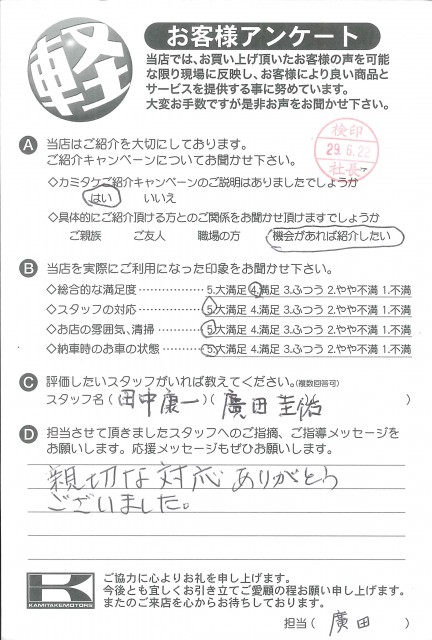 軽
お客様アンケート
当店では、お買い上げ頂いたお客様の声を可能
な限り現場に反映し、お客様により良い商品と
サービスを提供する事に努めています。
大変お手数ですが是非お声をお聞かせ下さい。
検印
29.6.22
社長
A 当店はご紹介を大切にしております。
ご紹介キャンペーンについてお聞かせ下さい。
◇カミタケご紹介キャンペーンのご説明はありましたでしょうか
はい いいえ
◇具体的にご紹介頂ける方とのご関係をお聞かせ頂けますでしょうか
ご親族 ご友人 職場の方 機会があれば紹介したい
B 当店を実際にご利用になった印象をお聞かせ下さい。
◇総合的な満足度 ・・・・・・・・・・ 5.大満足 4.満足 3.ふつう 2.やや不満 1.不満
◇スタッフの対応 ・・・・・・・・・・ 5.大満足 4.満足 3.ふつう 2.やや不満 1.不満
◇お店の雰囲気、清掃 ・・・・・・ 5.大満足 4.満足 3.ふつう 2.やや不満 1.不満
◇納車時のお車の状態 ・・・・・・ 5.大満足 4.満足 3.ふつう 2.やや不満 1.不満
C 評価したいスタッフがいれば教えてください。(複数回答可)
スタッフ名 ( 田中康一 )( 廣田圭佑 )
D 担当させて頂きましたスタッフへのご指摘、ご指導メッセージを
お願いします。応援メッセージもぜひお願いします。
親切な対応ありがとう
ございました。
K
KAMITAKEMOTORS
ご協力に心よりお礼を申し上げます。
今後とも宜しくお引き立てご愛顧の程お願い申し上げます。
またのご来店を心からお待ちしております。
担当 ( 廣田 )